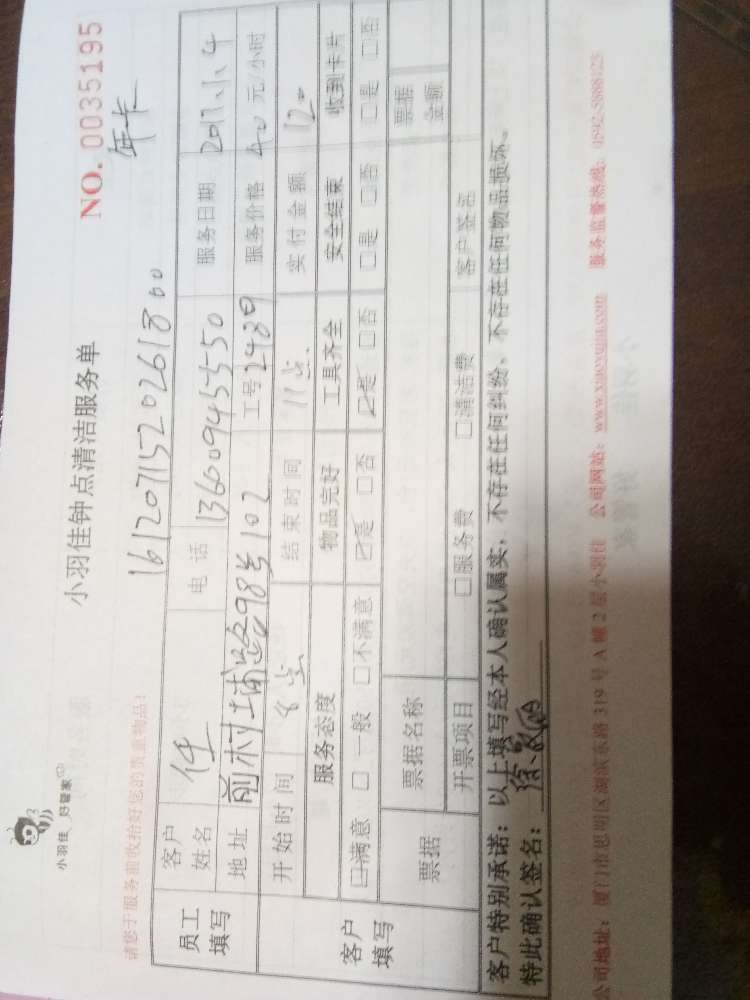 小羽佳 好管家
小羽佳钟点清洁服务单
NO. 0035195
年卡
请您于服务前收拾好您的贵重物品!
1612071520261800
员工填写 客户姓名 任 电话 13600945550 服务日期 2017.1.4
地址 前村埔路298号102 工号 2489 服务价格 40 元/小时
开始时间 8点 结束时间 11点 实付金额 120
客户填写 服务态度 物品完好 工具齐全 安全结束 收到卡片
☑满意 □一般 □不满意 ☑是 □否 ☑是 □否 □是 □否 □是 □否
票据 票据名称 票据金额
开票项目 □服务费 □清洁费 客户签名
客户特别承诺:以上填写经本人确认属实,不存在任何纠纷,不存在任何物品损坏。
特此确认签名:
公司地址:厦门市思明区湖滨东路319号A幢2层小羽佳 公司网站:www.xiaoyujia.com 服务监督热线:0592-5888123